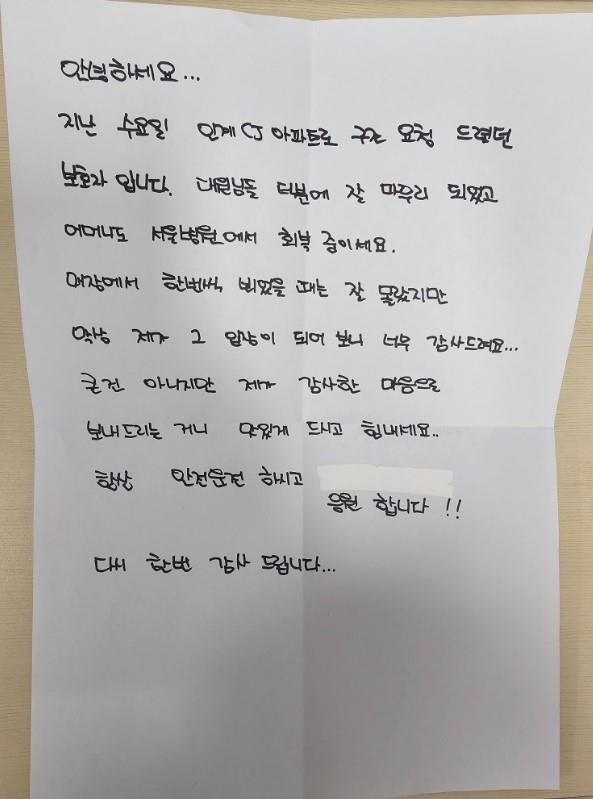 안녕하세요...
지난 수요일 인계 CJ 아파트로 구조 요청 드렸던
보호자 입니다. 대원님들 덕분에 잘 마무리 되었고
어머니도 서울병원에서 회복 중이세요.
매장에서 한번씩 뵈었을 때는 잘 몰랐지만
막상 제가 그 입장이 되어 보니 너무 감사드려요...
큰건 아니지만 제가 감사한 마음으로
보내드리는 거니 맛있게 드시고 힘내세요..
항상 안전운전 하시고
응원 합니다 !!
다시 한번 감사 드립니다...